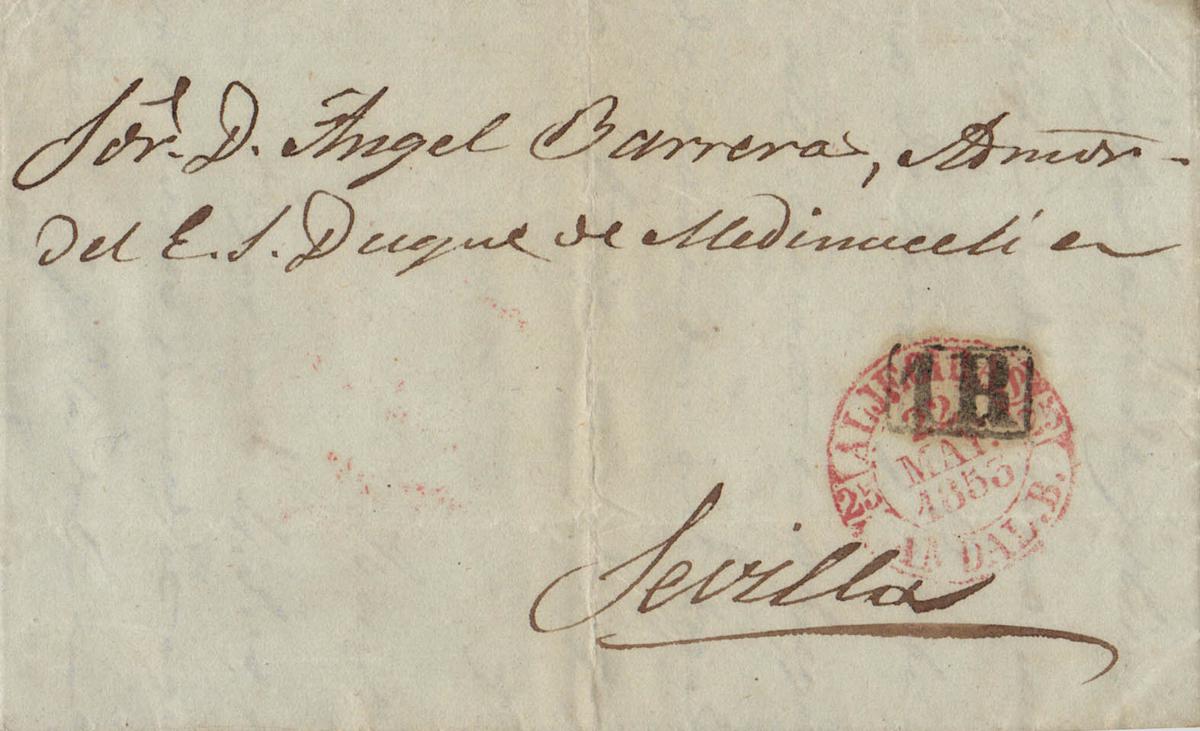 Sor. D. Ángel Barrera, Admor.
del E. S. Duque de Medinaceli en
1R
22
MAY.
1853
25
ANDAL. B.
Sevilla